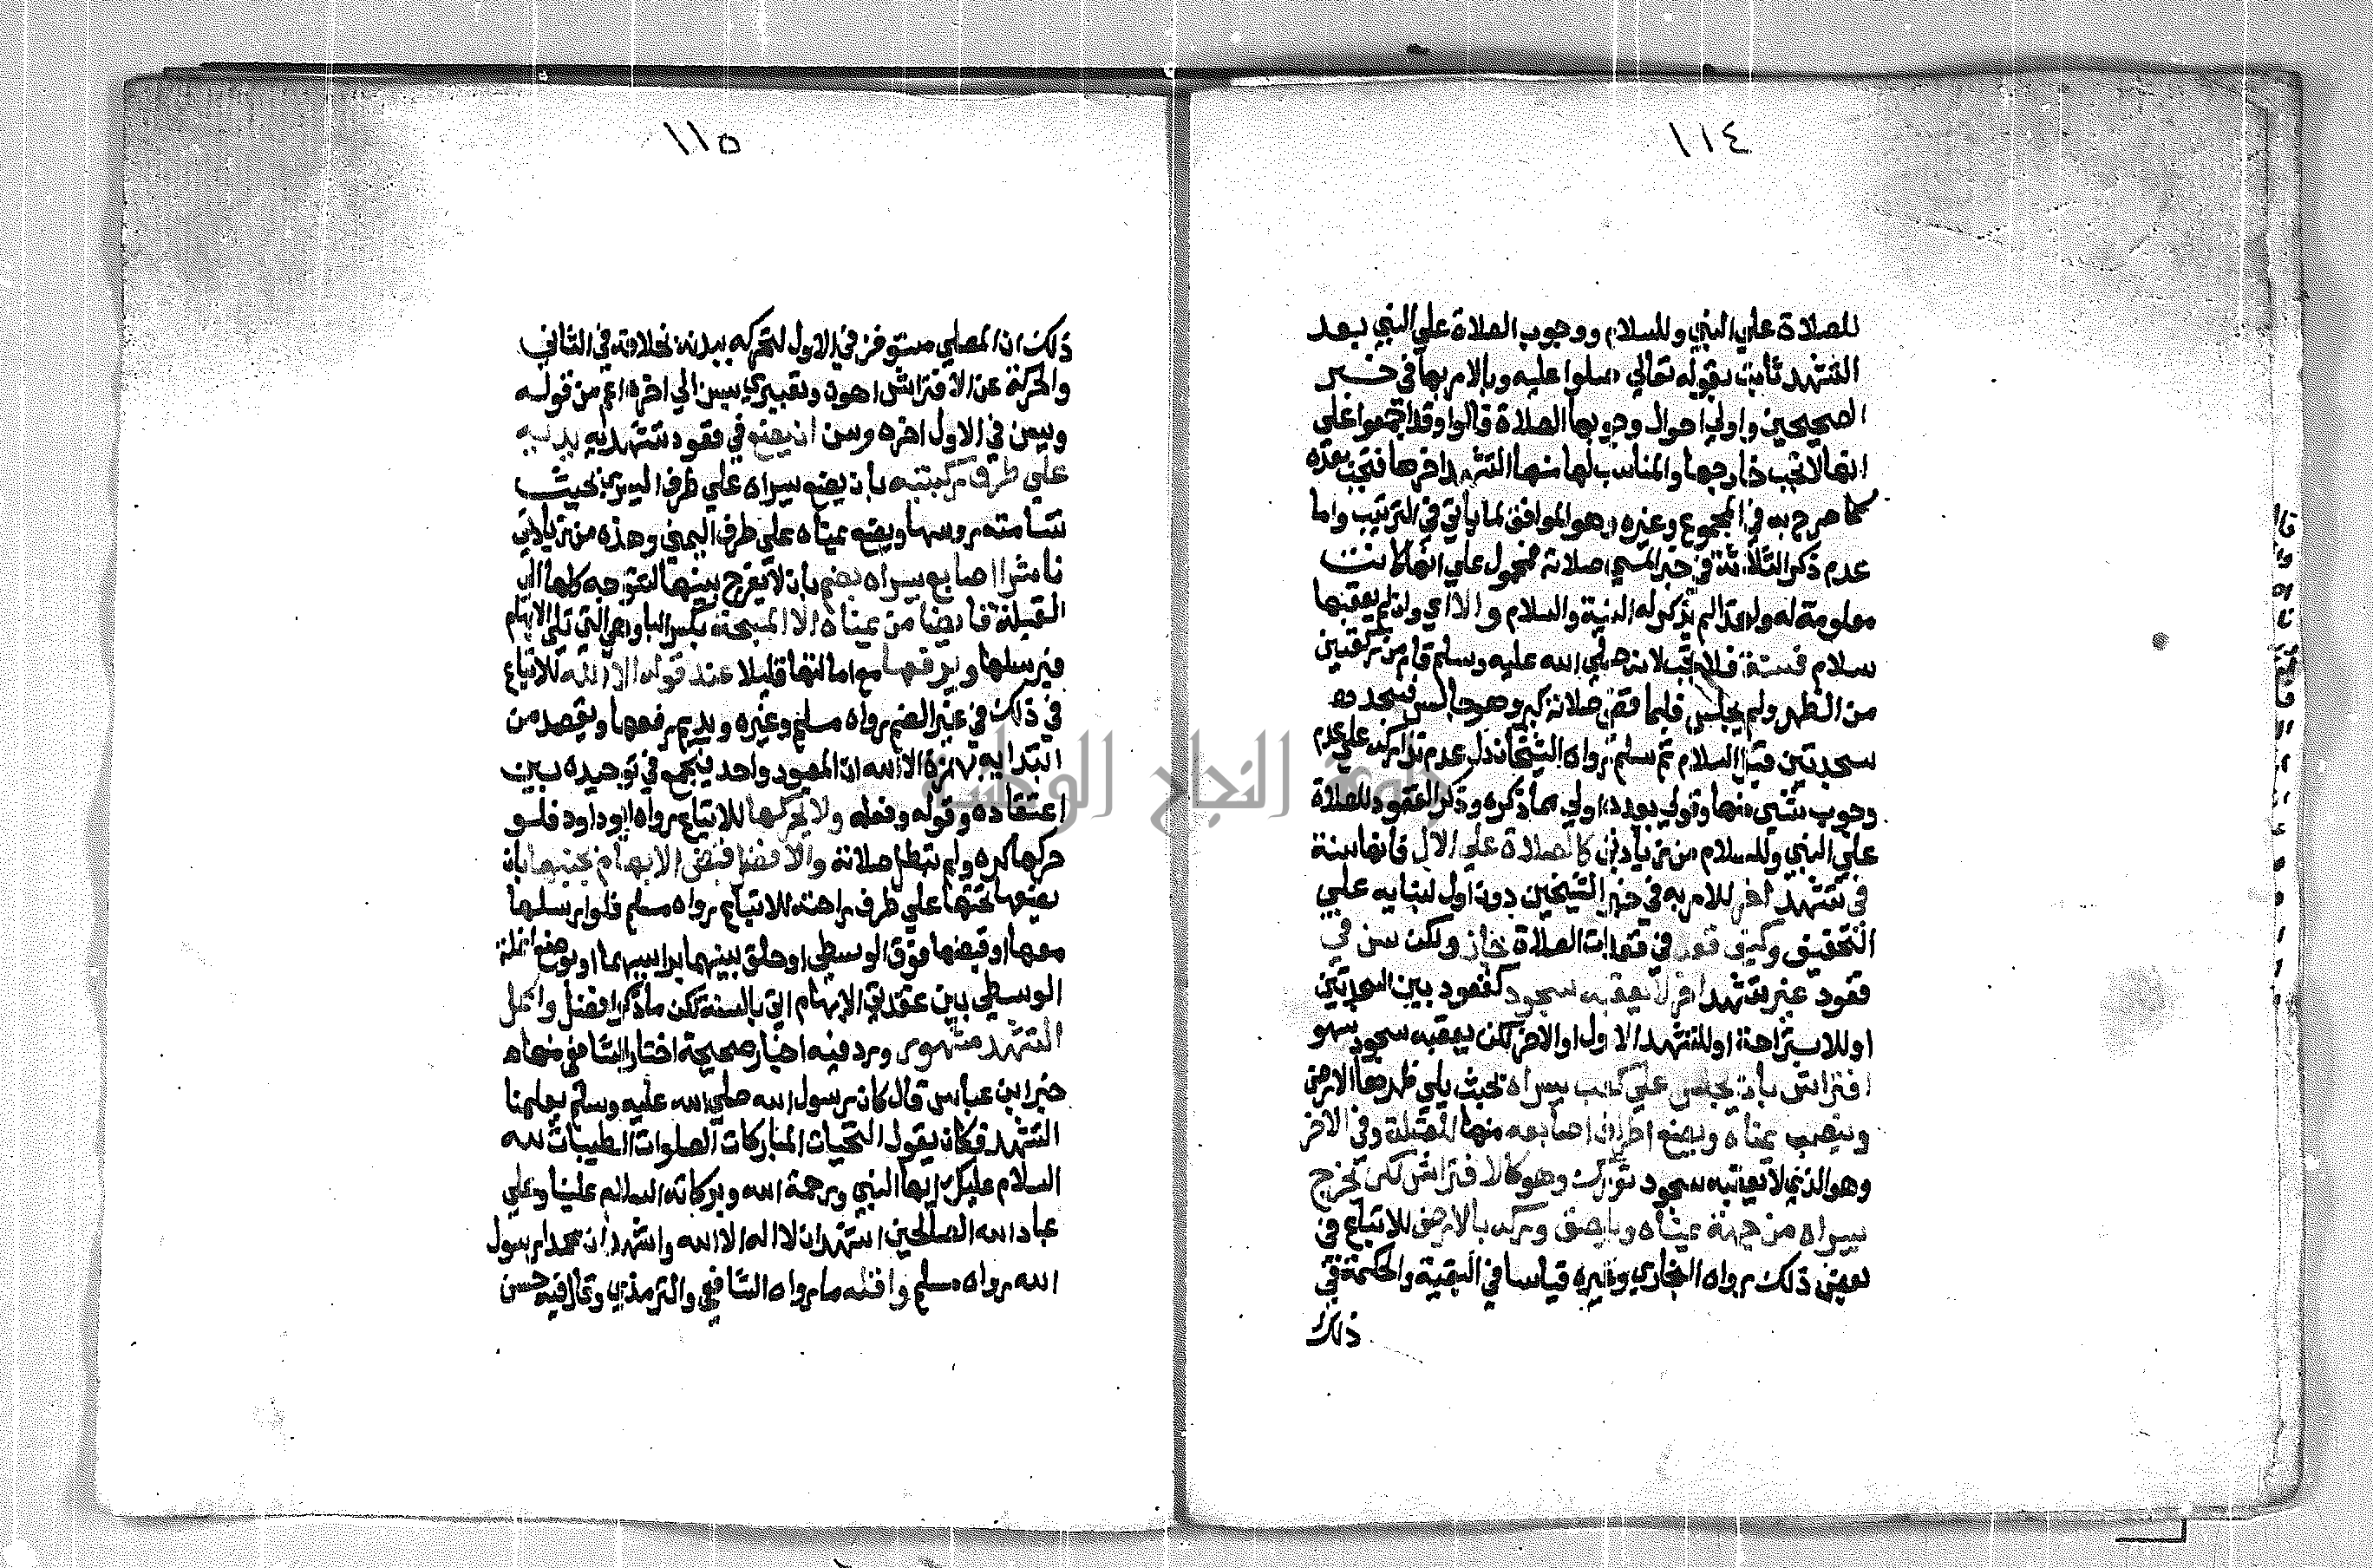 ١١٤
للصلاة علي النبي وللسلام ووجوب الصلاة علي النبي بعد
التشهد ثابت بقوله تعالي صلوا عليه وبالامر بها في خبر
الصحيحين واولي احوال وجوبها الصلاة قالوا وقد اجمعوا علي
انها لا تجب خارجها والمناسب لها منها التشهد اخرها فتجب بعده
كما صرح به في المجموع وغيره وهو الموافق لما ياتي في الترتيب واما
عدم ذكر الثلاثة في خبر المسي صلاته فمحمول علي انها كانت
معلومة له ولهذا لم يذكر له النية والسلام والا اي وان لم يعقبها
سلام فسنة فلا تجب لانه صلي الله عليه وسلم قام من ركعتين
من الظهر ولم يجلس فلما قضي صلاته كبر وهو جالس فسجد
سجدتين قبل السلام ثم سلم رواه الشيخان دل عدم تداركه علي عدم
وجوب شي منها وقولي بعده اولي مما ذكره وذكر القعود للصلاة
علي النبي وللسلام من زيادتي كالصلاة علي الال فانها سنة
في تشهد اخر للامر به في خبر الشيخين دون اول لبنايه علي
التخفيف وكيف قعد في قعدات الصلاة جاز ولكن سن في
قعود غير تشهد اخر لا يعقبه سجود كقعود بين السجدتين
او للاستراحة او للتشهد الاول او الاخر لكن يعقبه سجود سهو
افتراش بان يجلس علي كعب يسراه بحيث يلي ظهرها الارض
وينصب يمناه ويضع اطراف اصابعه منها للقبلة وفي الاخر
وهو الذي لا يعقبه سجود تورك وهو كالافتراش لكن يخرج
يسراه من جهة يمناه ويلصق وركه بالارض للاتباع في
بعض ذلك رواه البخاري وغيره قياسا في البقية والحكمة في
ذلك
١١٥
ذلك ان المصلي مستوفز في الاول لتحركه ببدنه بخلافه في الثاني
والحركة عن الافتراش اهون وتعبيري بيسن الي اخره اعم من قوله
ويسن في الاول اخره وسن ان يضع في قعود تشهديه يديه
علي طرف ركبتيه بان يضع يسراه علي طرف اليسري بحيث
تسامته روسها ويضع يمناه علي طرف اليمني وهذه من زيادتي
ناشرا اصابع يسراه بضم بان لا يفرج بينها لتتوجه كلها الي
القبلة قابضا من يمناه الا المسبحة بكسر الباء وهي التي تلي الابهام
فيرسلها ويرفعها مع امالتها قليلا عند قوله الا الله للاتباع
في ذلك في غير الضم رواه مسلم وغيره ويديم رفعها ويقصد من
ابتدايه بهمزة الا الله ان المعبود واحد فيجمع في توحيده بين
اعتقاده وقوله وفعله ولا يحركها للاتباع رواه ابو داود فلو
حركها كره ولم تبطل صلاته والافضل قبض الابهام بجنبها بان
يضعها تحتها علي طرف راحته للاتباع رواه مسلم فلو ارسلها
معها او قبضها فوق الوسطي او حلق بينهما براسيهما او وضع انملة
الوسطي بين عقدتي الابهام اتي بالسنة لكن ما ذكر افضل واكمل
التشهد مشهور ورد فيه اخبار صحيحة اختار الشافعي منها
خبر ابن عباس قال كان رسول الله صلي الله عليه وسلم يعلمنا
التشهد فكان يقول التحيات المباركات الصلوات الطيبات لله
السلام عليك ايها النبي ورحمة الله وبركاته السلام علينا وعلي
عباد الله الصالحين اشهد ان لا اله الا الله واشهد ان محمدا رسول
الله رواه مسلم واقله ما رواه الشافعي والترمذي وقال فيه حسن
جامعة النجاح الوطنية